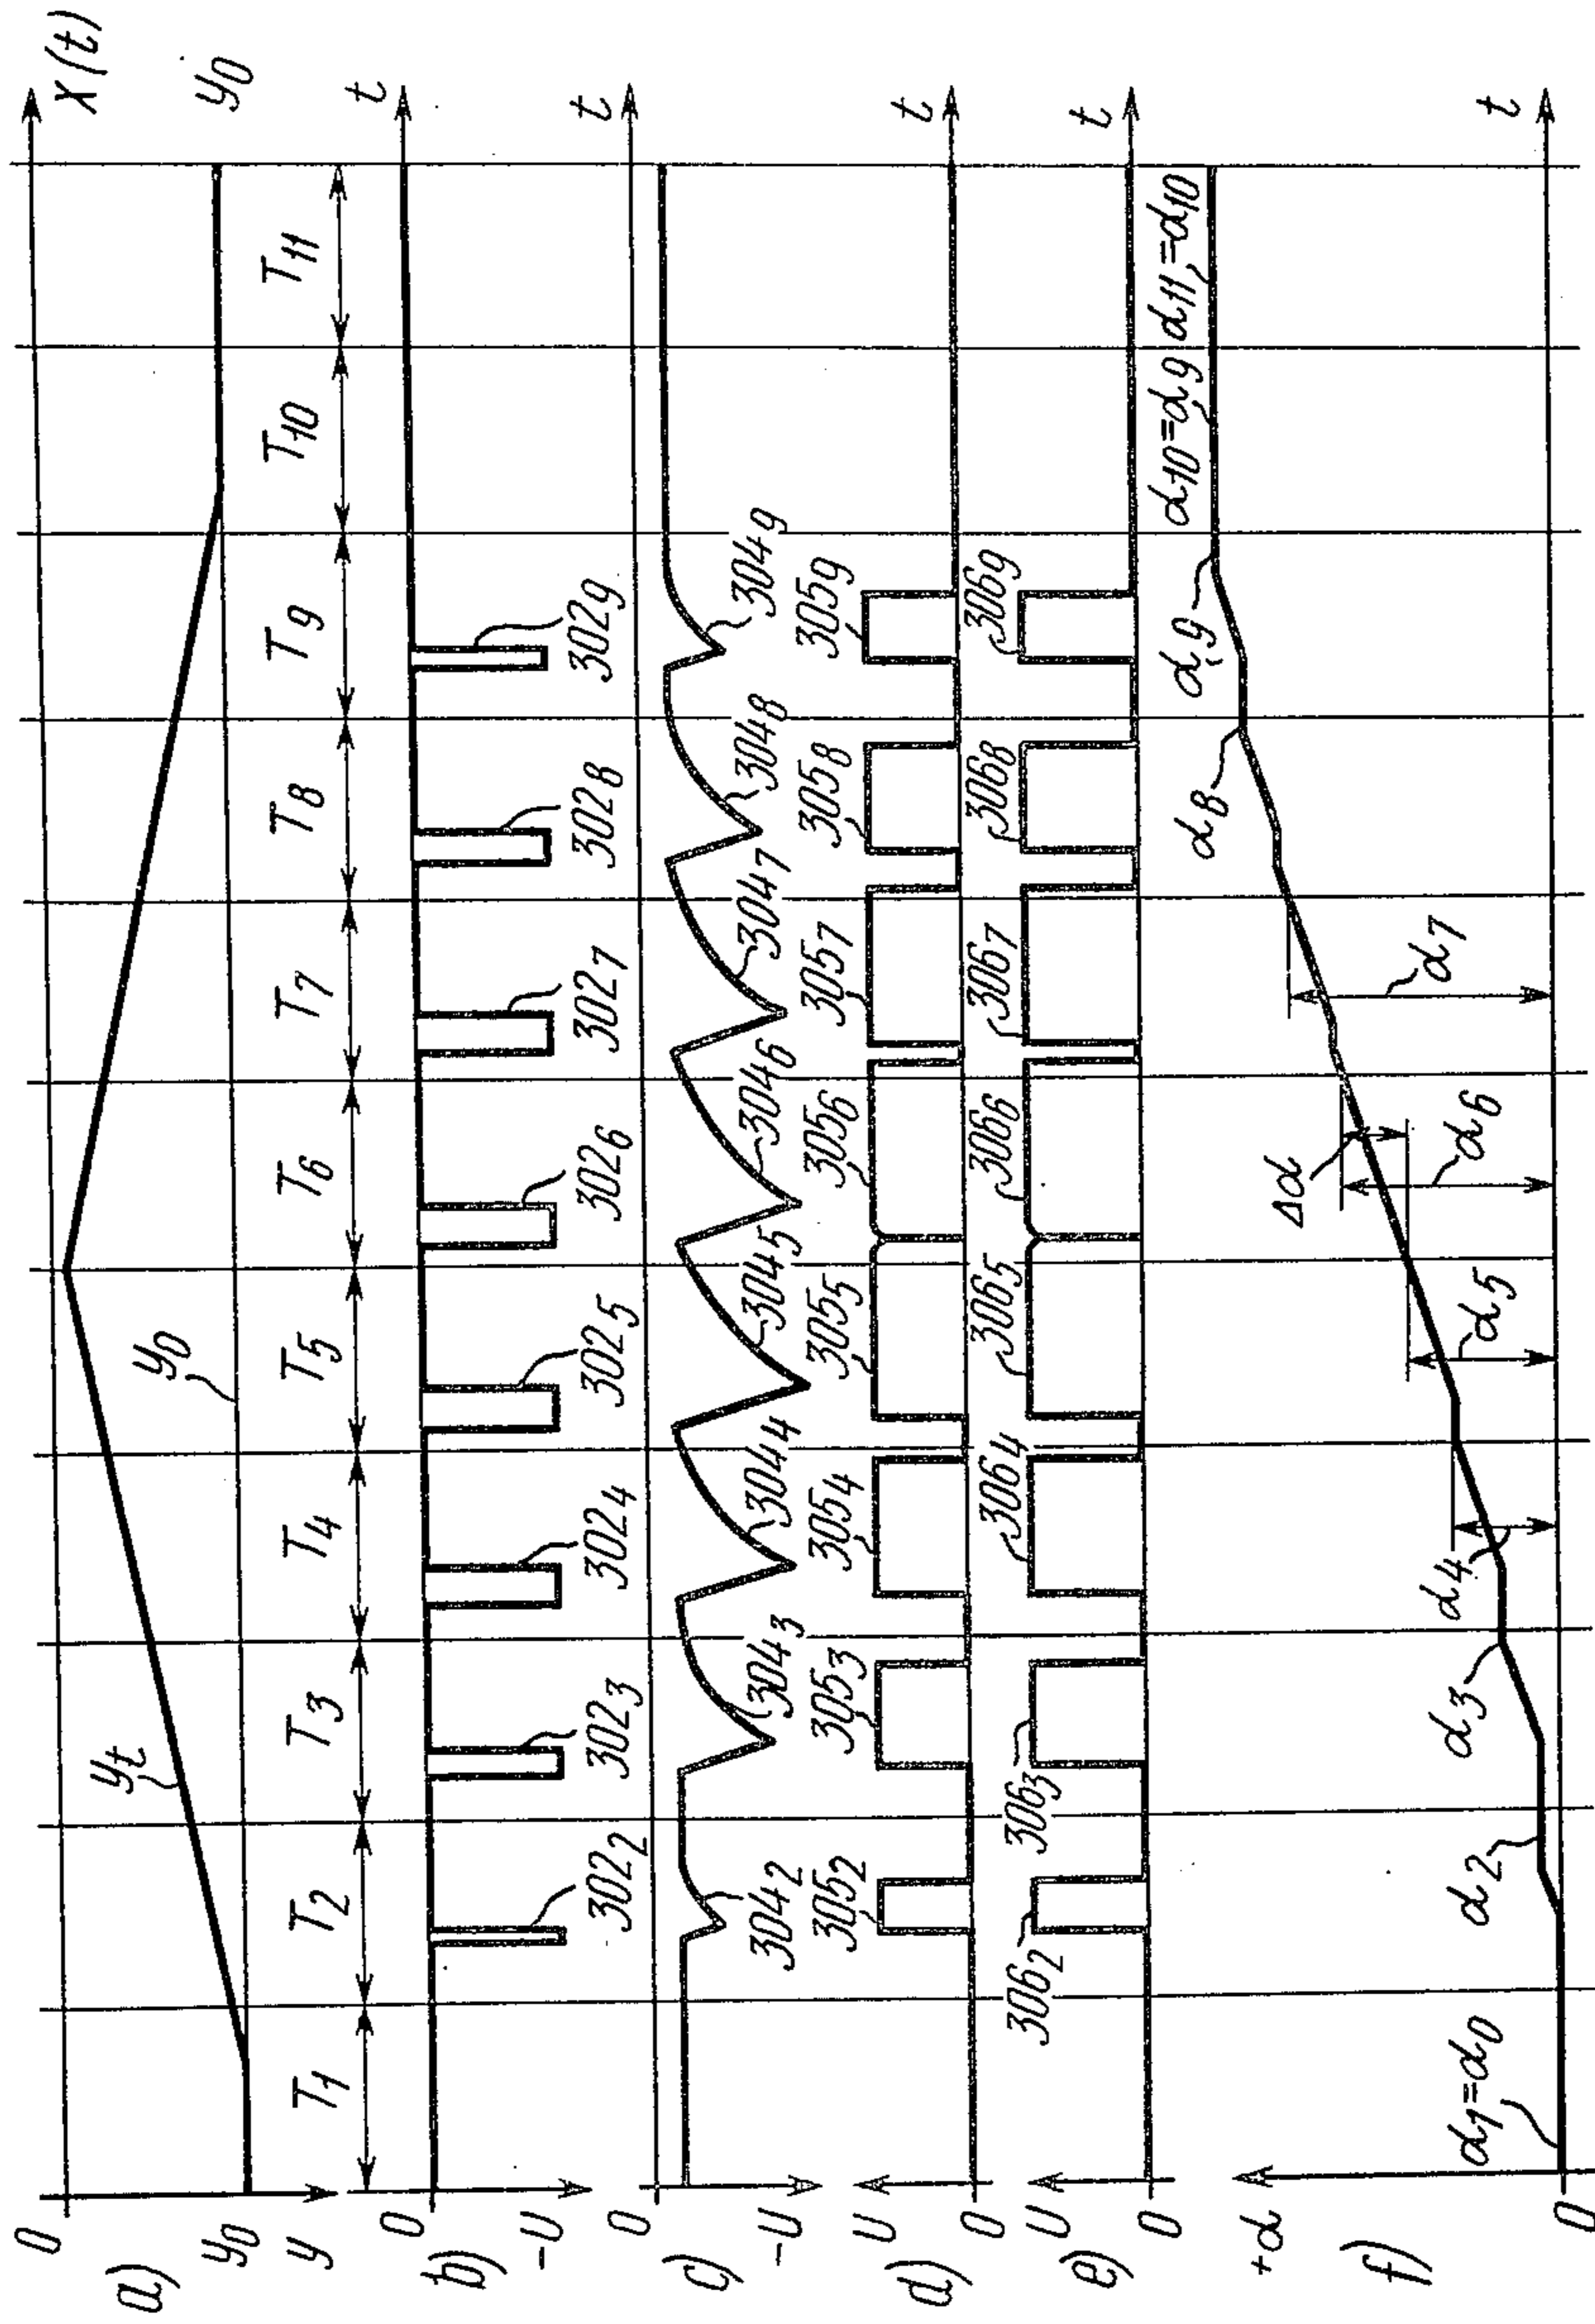 0 X(t)
a) y0 y yt y0 y0
T1 T2 T3 T4 T5 T6 T7 T8 T9 T10 T11
b) 0 -U t
3022 3023 3024 3025 3026 3027 3028 3029
c) 0 -U t
3042 3043 3044 3045 3046 3047 3048 3049
d) U 0 t
3052 3053 3054 3055 3056 3057 3058 3059
e) U 0 t
3062 3063 3064 3065 3066 3067 3068 3069
f) +α 0 t
α1=α0 α2 α3 α4 α5 Δα α6 α7 α8 α9 α10=α9 α11=α10